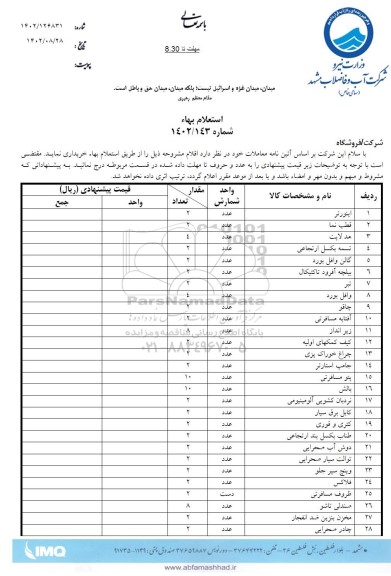 باسمه تعالی
شماره: ۱۴۰۲/۱۲۴۸۳۱
تاریخ: ۱۴۰۲/۰۸/۲۸
پیوست:
مهلت تا 8.30
وزارت نیرو
شرکت آب و فاضلاب مشهد
(سهامی خاص)
میدان، میدان غزه و اسرائیل نیست؛ بلکه میدان، میدان حق و باطل است.
مقام معظم رهبری
استعلام بهاء
شماره ۱۴۰۲/۱۴۳
شرکت/فروشگاه
با سلام این شرکت بر اساس آئین نامه معاملات خود در نظر دارد اقلام مشروحه ذیل را از طریق استعلام بهاء خریداری نماید. مقتضی
است با توجه به توضیحات زیر قیمت پیشنهادی را به عدد و حروف تا مهلت داده شده در قسمت مربوطه درج نمائید. به پیشنهاداتی که
مشروط و مبهم و بدون مهر و امضاء باشد و یا بعد از موعد مقرر اعلام گردد، ترتیب اثری داده نخواهد شد.
ردیف نام و مشخصات کالا واحد شمارش مقدار تعداد قیمت پیشنهادی (ریال) واحد جمع
۱ اینورتر عدد ۲
۲ قطب نما عدد ۲
۳ هد لایت عدد ۴
۴ تسمه بکسل ارتجاعی عدد ۲
۵ گالن وافل بورد عدد ۲
۶ بیلچه آفرود تاکتیکال عدد ۲
۷ تبر عدد ۲
۸ وافل بورد عدد ۴
۹ چاقو عدد ۲
۱۰ آفتابه مسافرتی عدد ۲
۱۱ زیر انداز عدد ۸
۱۲ کیف کمکهای اولیه عدد ۲
۱۳ چراغ خوراک پزی عدد ۲
۱۴ جامپ استارتر عدد ۲
۱۵ پتو مسافرتی عدد ۱۰
۱۶ بالش عدد ۱۰
۱۷ نردبان کشویی آلومینیومی عدد ۲
۱۸ کابل برق سیار عدد ۲
۱۹ کتری و قوری عدد ۲
۲۰ طناب بکسل بند ارتجاعی عدد ۲
۲۱ دوش آب صحرایی عدد ۲
۲۲ توالت سیار صحرایی عدد ۲
۲۳ وینچ سپر جلو عدد ۲
۲۴ فلاکس عدد ۲
۲۵ ظروف مسافرتی دست ۲
۲۶ صندلی تاشو عدد ۸
۲۷ مخزن بنزین ضد انفجار عدد ۲
۲۸ چادر صحرایی عدد ۲
ParsNamadData
پایگاه اطلاع رسانی مناقصه و مزایده
۰۲۱-۸۸۳۴۹۶۷۰-۵
IMQ
www.abfamashhad.ir